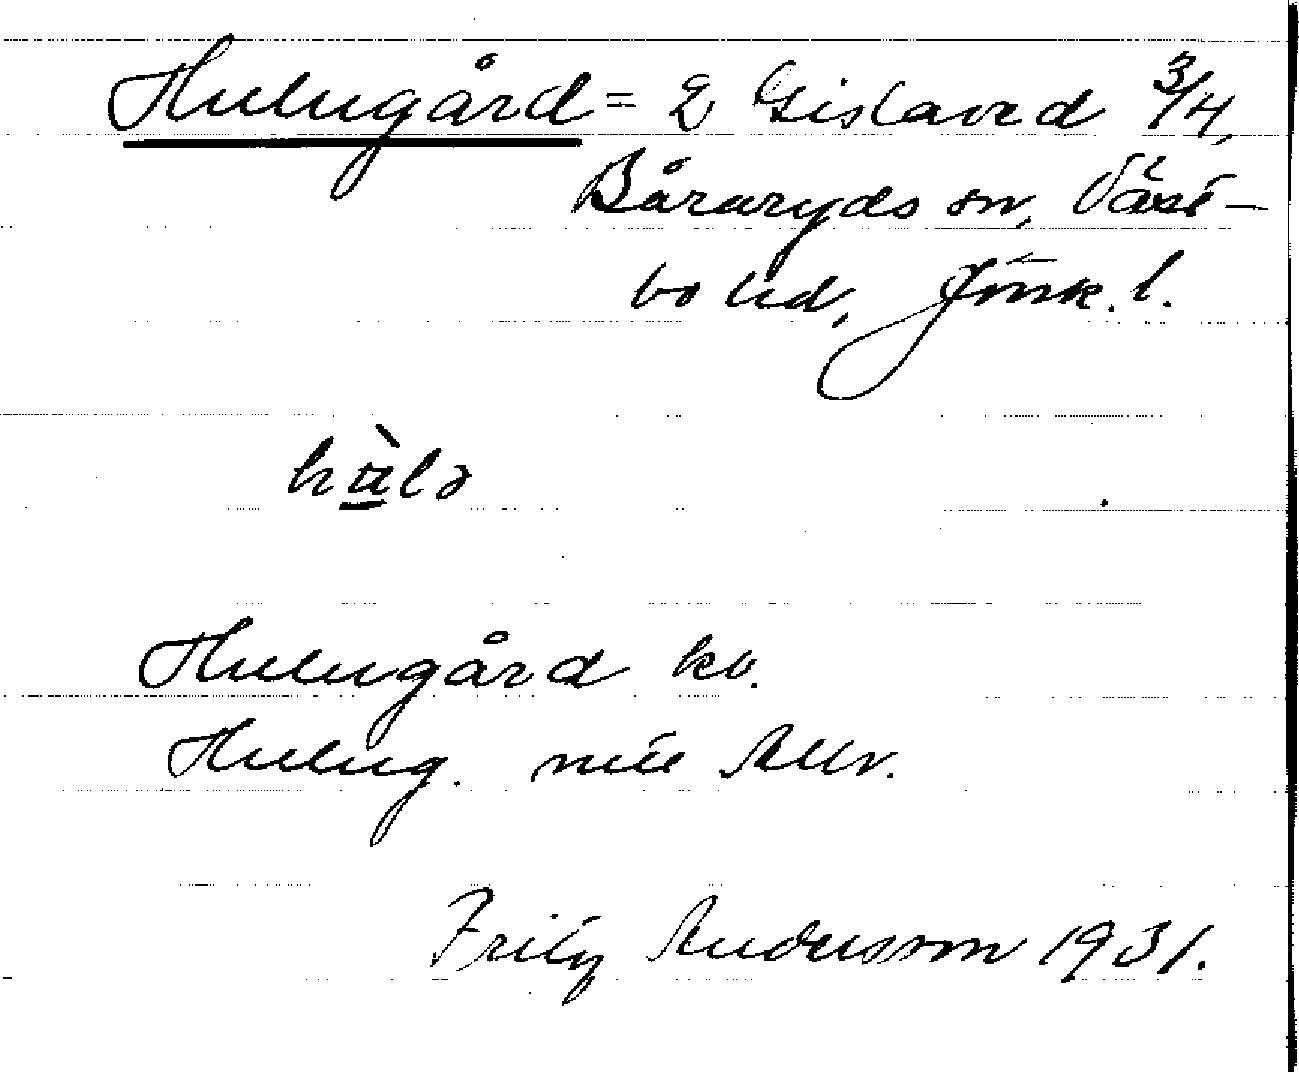 Hulugård = 2 Gislaved 3/4,
Båraryds sn, Väst-
bo hd, Jönk. l.
hù̲lə
Hulugård kv.
Hulug.
Fritz Andersson 1931.